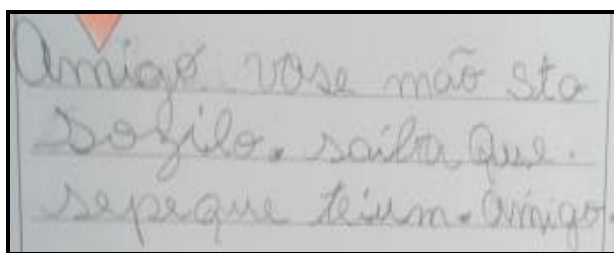 Amigo vose mão sto
sozilo. saiba que.
sepeque teium. amigo.